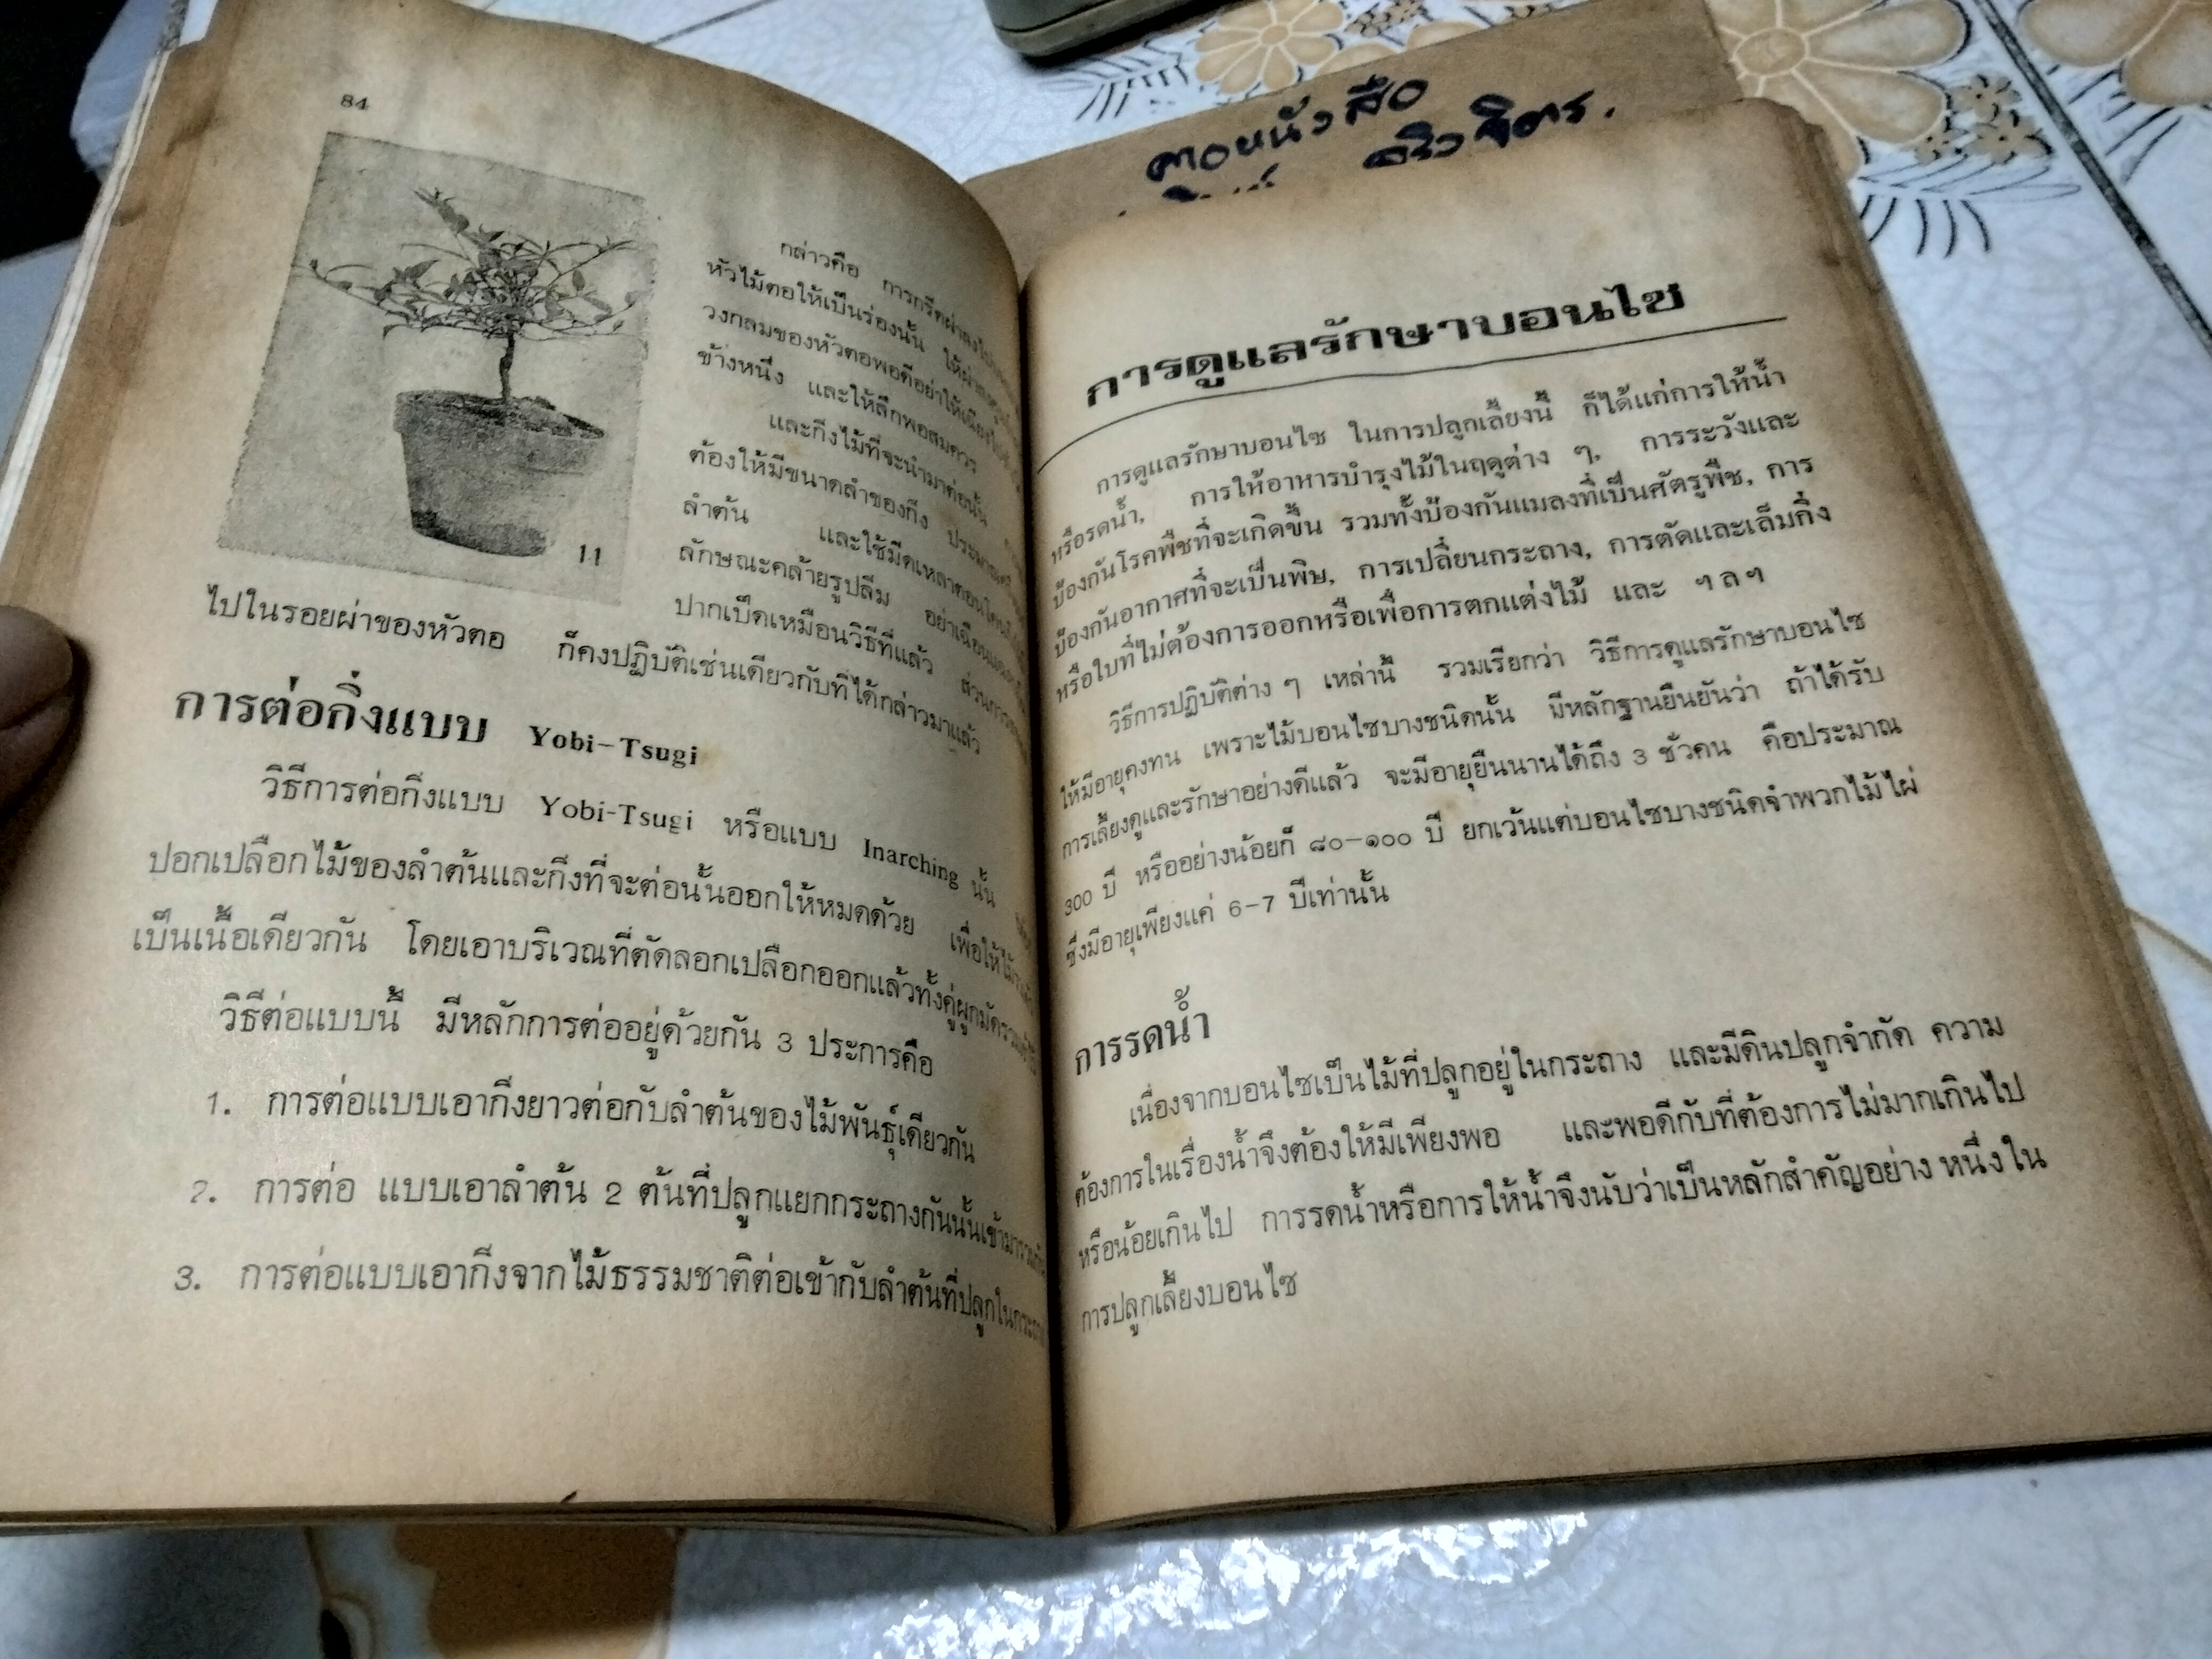 84
กล่าวคือ การกรีดผ่าลงไป
หัวไม้ตอให้เป็นร่องนั้น ให้ผ่า
วงกลมของหัวตอพอดีอย่าให้เฉียง
ข้างหนึ่ง และให้ลึกพอสมควร
และกิ่งไม้ที่จะนำมาต่อนั้น
ต้องให้มีขนาดลำของกิ่ง
ลำต้น และใช้มีดเหลาตอน
ลักษณะคล้ายรูปลิ่ม อย่าเฉือน
ปากเป็ดเหมือนวิธีที่แล้ว ส่วนการ
11
ไปในรอยผ่าของหัวตอ ก็คงปฏิบัติเช่นเดียวกับที่ได้กล่าวมาแล้ว
การต่อกิ่งแบบ Yobi-Tsugi
วิธีการต่อกิ่งแบบ Yobi-Tsugi หรือแบบ Inarching นั้น
ปอกเปลือกไม้ของลำต้นและกิ่งที่จะต่อนั้นออกให้หมดด้วย เพื่อให้
เป็นเนื้อเดียวกัน โดยเอาบริเวณที่ตัดลอกเปลือกออกแล้วทั้งคู่ผูกมัด
วิธีต่อแบบนี้ มีหลักการต่ออยู่ด้วยกัน 3 ประการคือ
1. การต่อแบบเอากิ่งยาวต่อกับลำต้นของไม้พันธุ์เดียวกัน
2. การต่อ แบบเอาลำต้น 2 ต้นที่ปลูกแยกกระถางกันนั้นเข้ามา
3. การต่อแบบเอากิ่งจากไม้ธรรมชาติต่อเข้ากับลำต้นที่ปลูกใน
หนังสือ
การดูแลรักษาบอนไซ
การดูแลรักษาบอนไซ ในการปลูกเลี้ยงนี้ ก็ได้แก่การให้น้ำ
หรือรดน้ำ, การให้อาหารบำรุงไม้ในฤดูต่าง ๆ, การระวังและ
ป้องกันโรคพืชที่จะเกิดขึ้น รวมทั้งป้องกันแมลงที่เป็นศัตรูพืช, การ
ป้องกันอากาศที่จะเป็นพิษ, การเปลี่ยนกระถาง, การตัดและเล็มกิ่ง
หรือใบที่ไม่ต้องการออกหรือเพื่อการตกแต่งไม้ และ ฯลฯ
วิธีการปฏิบัติต่าง ๆ เหล่านี้ รวมเรียกว่า วิธีการดูแลรักษาบอนไซ
ให้มีอายุคงทน เพราะไม้บอนไซบางชนิดนั้น มีหลักฐานยืนยันว่า ถ้าได้รับ
การเลี้ยงดูและรักษาอย่างดีแล้ว จะมีอายุยืนนานได้ถึง 3 ชั่วคน คือประมาณ
300 ปี หรืออย่างน้อยก็ ๘๐-๑๐๐ ปี ยกเว้นแต่บอนไซบางชนิดจำพวกไม้ไผ่
ซึ่งมีอายุเพียงแค่ 6-7 ปีเท่านั้น
การรดน้ำ
เนื่องจากบอนไซเป็นไม้ที่ปลูกอยู่ในกระถาง และมีดินปลูกจำกัด ความ
ต้องการในเรื่องน้ำจึงต้องให้มีเพียงพอ และพอดีกับที่ต้องการไม่มากเกินไป
หรือน้อยเกินไป การรดน้ำหรือการให้น้ำจึงนับว่าเป็นหลักสำคัญอย่าง หนึ่งใน
การปลูกเลี้ยงบอนไซ